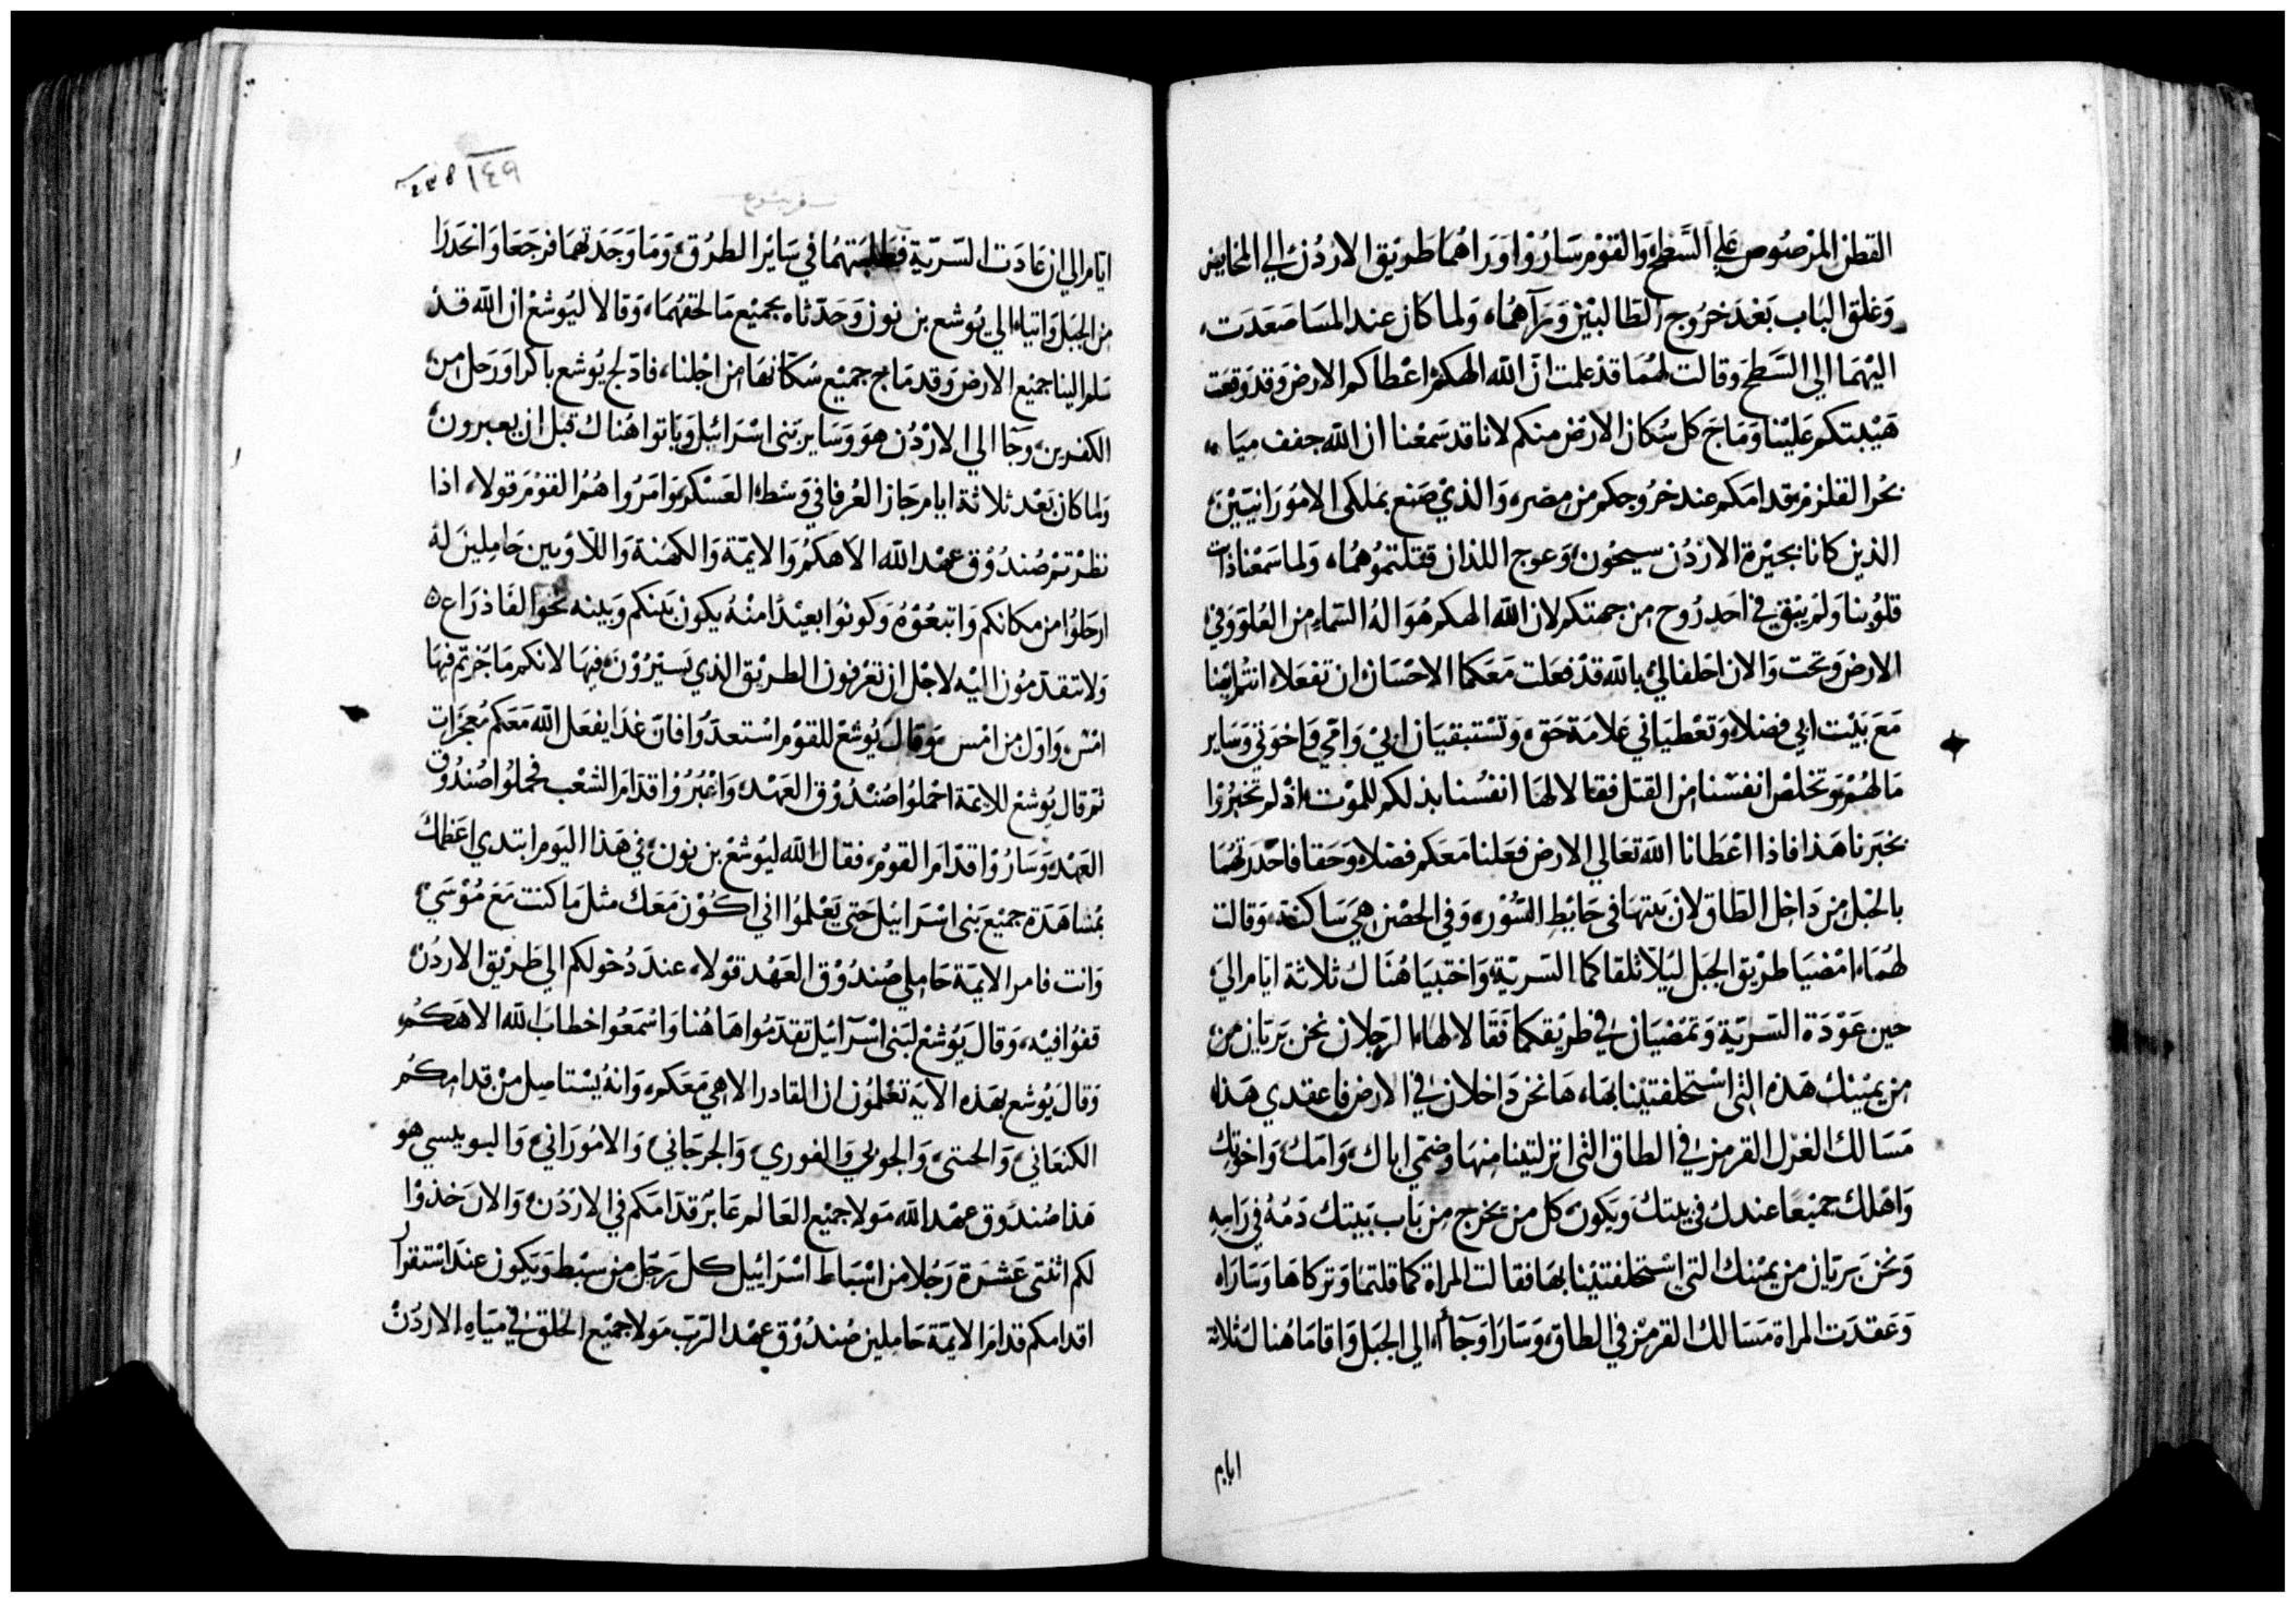 القطن المرصوص علي السَّطح والقوْم سَارُوْا وَرَاهُما طَريْق الاردُن الي المخايض
وَغلق البَاب بَعْدَ خرُوج الطَالبيْن وَرَآهُمَا، وَلما كان عند المسَا صَعَدَت،
اليْهمَا الي السَّطح وقالت لهُمَا قدْ علمت انّ الله الهكمْ اعْطاكم الارض وَقدْ وَقعَت
هَيْبتكم عَليْنا وَمَاجَ كل سُكان الارْض منكم لاننا قد سَمعْنا ان الله جفف ميَاه
بحْر القلزم قدامَكم عند خرُوجكم من مصْر، وَالذيْ صَنع بمَلكى الامُورَانييْن
الذين كانا بجيْرة الارْدُن سيحُون وَعوج اللذان قتلتمُوْهُمَا، وَلما سَمعْنا ذابت
قلوْبنا وَلم يَبْق في احَد رُوح من جهتكم لان الله الهكم هُوَ الهُ السّماء من العُلوّ وَفي
الارض وَتحت وَالان احْلفا لي بالله قدْ فعَلت مَعَكما الاحْسَان ان تفعَلا انتمُ ايْضا
مَعَ بَيْت ابي فضلا، وَتعْطيَاني عَلامَة حَق وَتسْتبقيَان ابيْ وَامّي وَاخوَتي وَسَاير
مَا لهُمْ وَتخلصْ انفسْنا من القتل فقالا لهَا انفسُنا بذلكم للموْت اذْ لم تخبرُوْا
بخبَرنا هَذا فاذا اعْطَانا الله تعَالي الارض فعَلنا مَعَكم فضلا وَحَقا فاحْدَرتهُمَا
بالحْبل من دَاخل الطَاق لان بيتهَا في حَايطِ السّوْر، وَفي الحصْن هيَ سَاكنة، وَقالت
لهُمَا، امْضيَا طريْق الجبَل ليَلا تلقاكما السّريّة، وَاختبيَا هُنَاك ثلاثة ايّام الي
حين عَوْدَة السّريّة وَتمْضيَان في طريْقكما فقَالا لهَا الرّجلان نحن بَريّان من
من يميْنك هَذه التي اسْتحلفتيْنا بهَا، هَا نحن دَاخلان في الارض فاعقدي هَذا
مَسَالك الغزل القرمزي في الطاق التي انزلتيْنا منهَا وَضمّي اباك، وَامّك وَاخوتك
وَاهْلك جميْعًا عندك في بيتك وَيكون، كل من يخرج من بَاب بَيتك دَمُهُ في رَاسِه
وَنحْن بَريّان من يميْنك التي اسْتحلفتيْنا بهَا فقالت المرَاة كما قلتما وَتركاهَا وَسَارَا،
وَعَقدَت المرَاة مَسَالك القرمز في الطاق، وَسَارَا وَجَاا الي الجبَل وَاقامَا هُناك ثلاثة
ايام
١٤٩
سفر يشوع
ايّام الي ان عَادَت السّريّة فطَلبَتهمُا في سَاير الطرُق، وَمَا وَجَدَتهمَا فرجَعَا وَانحَدَرَا
من الجبَل وَاتيَا، الي يُوشع بن نون وَحَدّثاه بجميْع مَا لحقهُمَا، وَقالا ليُوشعْ ان الله قدْ
سَلم الينا جميْع الارض وَقد مَاج جميْع سُكانهَا من اجْلنا، فادّلج يُوشع باكرا وَرَحل من
الكفرين، وجآ الي الارْدُن هوَ وَسَاير بَني اسْرَائيل وَباتوا هُناك قبل ان يعبرون
وَلما كان بَعْد ثلاثة ايام جَاز العُرفا في وَسَط العَسْكر، وَامَرُوا هُمُ القوْم قولا، اذا
نظرتم صُندُوْق عهْد الله الاهكمْ وَالايمّة وَالكهَنة وَاللاوْيين حَاملين لهُ
ارحَلوُا من مكانكم وَاتبعُوْهُ وَكونوُا بعيْدًا منْهُ يكون بَينكم وَبينه نحْوَ الفا ذرَاع
وَلا تتقدّمُون اليْه لاجْل ان تعْرفون الطريْق الذي تسيْرُوْن، فيهَا لانكم مَا جزتم فيهَا
امْس، وَاوّل من امْس، وَقالَ يُوشعْ للقوْم اسْتعدّوُا فانّ غدًا يفعَل الله مَعَكم مُعجزَات
ثم قال يُوشعْ للايمّة احْملوُا صُندُوْق العَهْد، وَاعْبُرُوْا قدّام الشعْب فحمَلوُا صُندُوْق
العَهْد وَسَارُوْا قدّام القوْم، فقالَ الله ليُوشعْ بن نون، في هَذا اليَوم ابتدي اعَظمك
بمُشاهَدَة جميْع بَني اسْرَائيل حَتي يَعْلموُا اني اكوُن مَعَك مثل مَا كنت مَعَ مُوْسَي
وَانت فامر الايمّة حَاملي صُندُوْق العَهْد قوْلا، عندَ دُخولكم الي طَريْق الاردُن
قفوُا فيْه، وَقالَ يُوشعْ لبَني اسْرَائيل تقدّمُوا هَاهُنا وَاسْمَعُوا خطابَ الله الاهكمُ
وَقالَ يُوشع بهَذه الايَة تعْلمُون ان القادر الاهي مَعَكم، وَانهُ يسْتاصل منْ قدامكُم
الكنعَاني، وَالحتي، وَالجوي وَالفوري، وَالجرجَاني، وَالامُورَاني، وَاليبوسي هو
هَذا صُندُوق عهْد الله مَولا جميْع العَالم عَابرْ قدّامَكم في الارْدُن، وَالان خذوْا
لكم اثنتي عَشرَة رَجُلا من اسْبَاط اسْرَائيل كل رَجُل من سبْط وَيَكون عندَ اسْتقرار
اقدامكم قدام الايمّة حَاملين صُندُوْق عهْد الرّب مَولا جميْع الخلق في ميَاه الاردُن